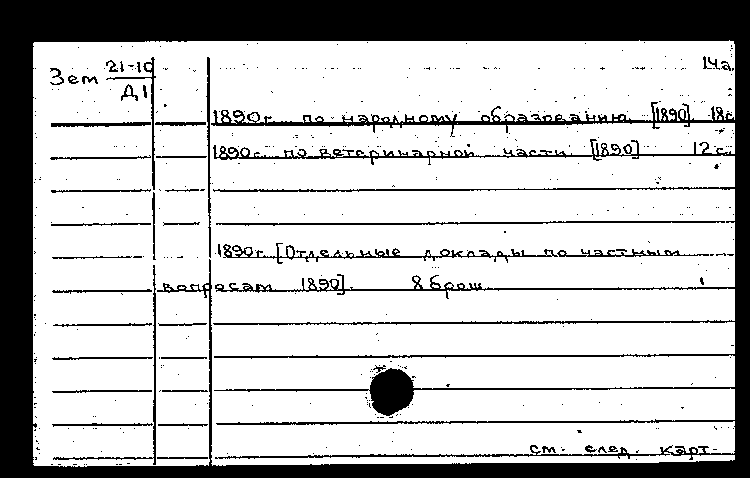 14а.
Зем 21-10
Д1
1890г. по народному образованию. [1890]. 18с
1890г. по ветеринарной части. [1890] 12с.
1890г. [Отдельные доклады по частным
вопросам 1890]. 8 брош.
см. след. карт.